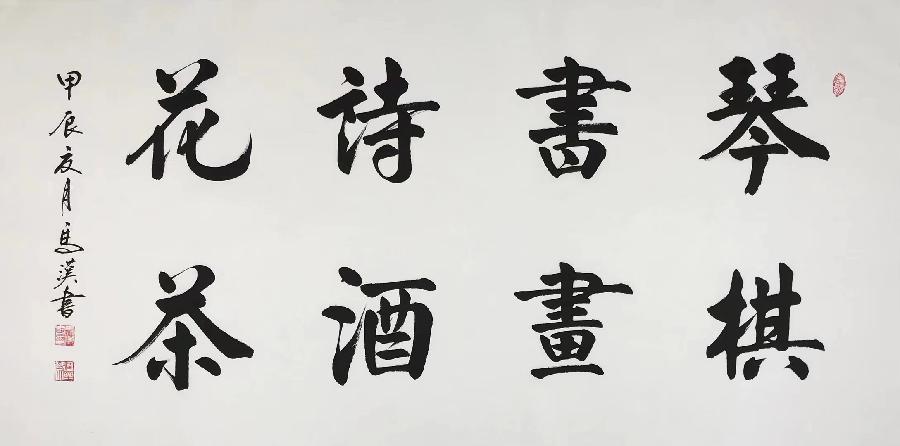 琴棋
書畫
詩酒
花茶
甲辰夏月馬漢書